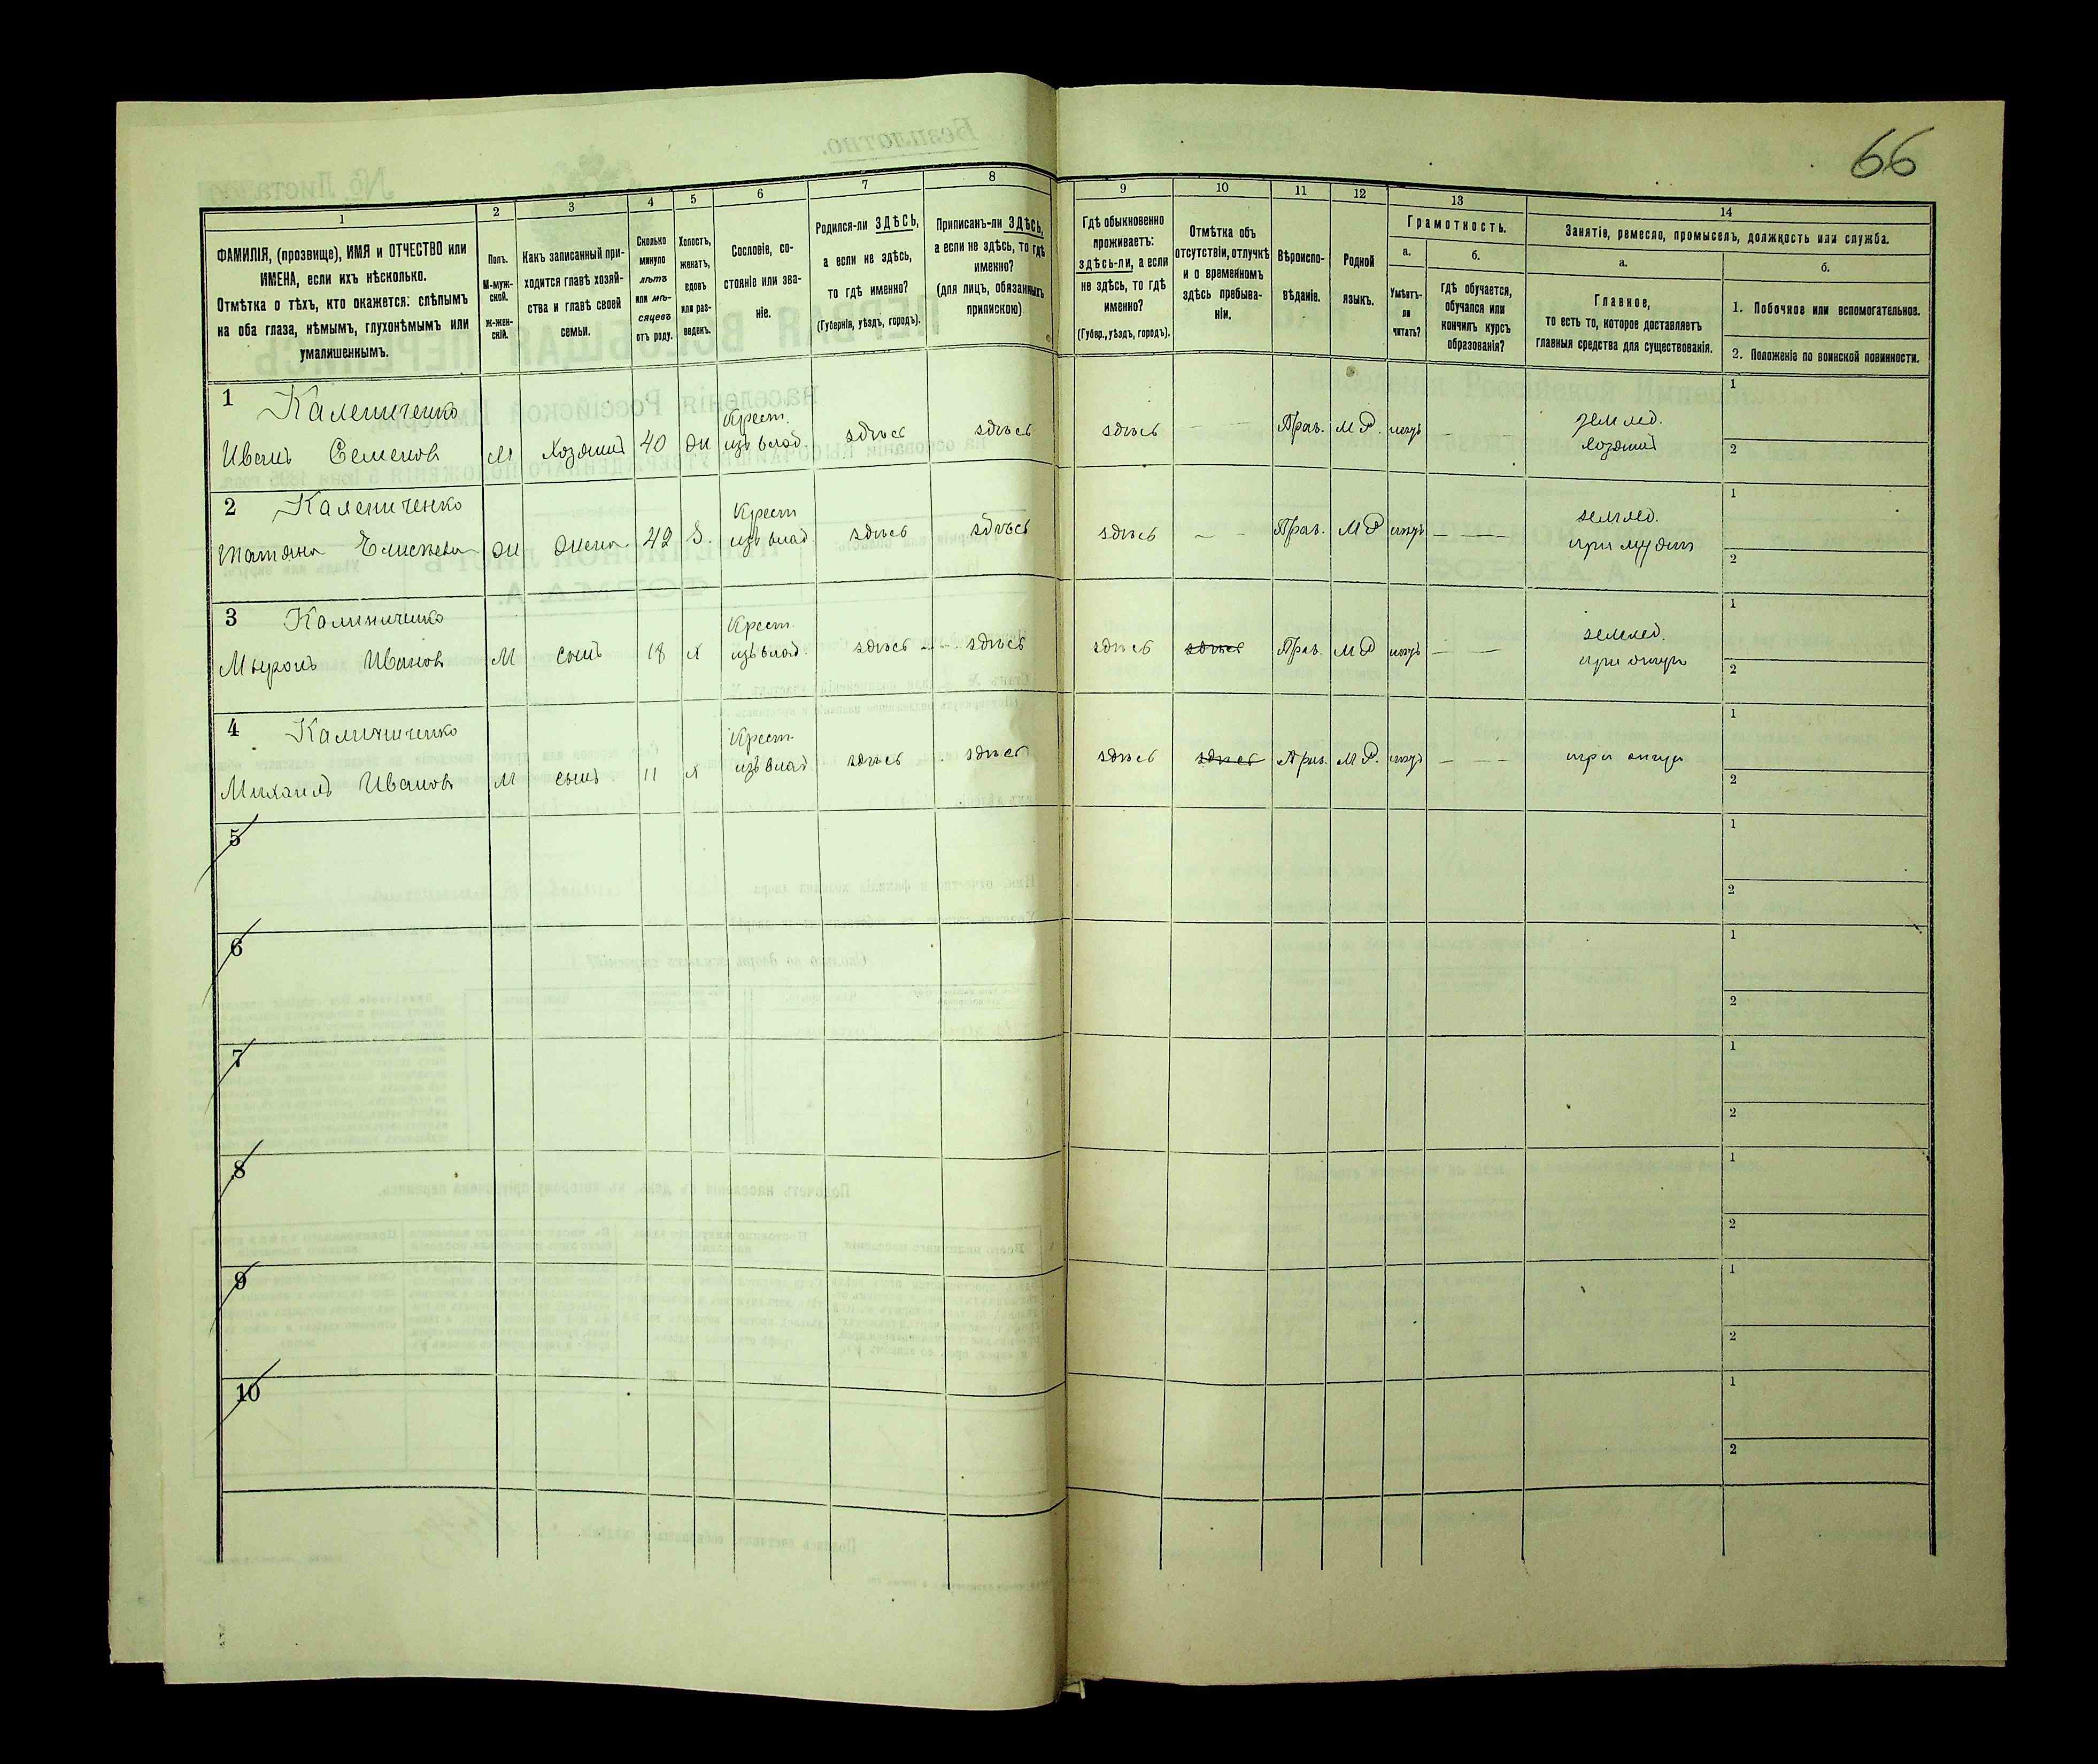 66
1
2
3
4
5
6
7
8
9
10
11
12
13
14
ФАМИЛІЯ, (прозвище), ИМЯ и ОТЧЕСТВО или
ИМЕНА, если ихъ нѣсколько.
Отмѣтка о тѣхъ, кто окажется: слѣпымъ
на оба глаза, нѣмымъ, глухонѣмымъ или
умалишеннымъ.
Полъ.
М-муж-
ской.
Ж-жен-
скій.
Какъ записанный при-
ходится главѣ хозяй-
ства и главѣ своей
семьи.
Сколько
минуло
лѣтъ
или мѣ-
сяцевъ
отъ роду.
Холостъ,
женатъ,
вдовъ
или раз-
веденъ.
Сословіе, со-
стояніе или зва-
ніе.
Родился-ли ЗДѢСЬ,
а если не здѣсь,
то гдѣ именно?
(Губернія, уѣздъ, городъ).
Приписанъ-ли ЗДѢСЬ,
а если не здѣсь, то гдѣ
именно?
(для лицъ, обязанныхъ
припискою)
Гдѣ обыкновенно
проживаетъ:
здѣсь-ли, а если
не здѣсь, то гдѣ
именно?
(Губер., уѣздъ, городъ).
Отмѣтка объ
отсутствіи, отлучкѣ
и о временномъ
здѣсь пребыва-
ніи.
Вѣроиспо-
вѣданіе.
Родной
языкъ.
Грамотность.
а.
Умѣетъ-
ли
читать?
б.
Гдѣ обучается,
обучался или
кончилъ курсъ
образованія?
Занятіе, ремесло, промыселъ, должность или служба.
а.
Главное,
то есть то, которое доставляетъ
главныя средства для существованія.
б.
1. Побочное или вспомогательное.
2. Положеніе по воинской повинности.
1 Калениченко Крест. землед. 1
Иванъ Семеновъ М Хозяинъ 40 Ж изъ влад. здѣсь здѣсь здѣсь — — Прав. МР. — хозяинъ 2
2 Калениченко Крест землед. 1
Татяна Ж Жена 42 З. изъ влад. здѣсь здѣсь здѣсь — — Прав. МР — — при мужѣ 2
3 Калиниченко Крест. землед. 1
Мыронъ Ивановъ М сынъ 18 Х изъ влад. здѣсь здѣсь здѣсь здѣсь Прав. МР — — при отцѣ 2
4 Калиниченко Крест. 1
Михаилъ Ивановъ М сынъ 11 Х изъ влад здѣсь здѣсь здѣсь здѣсь Прав. МР. — — при отцѣ 2
5 1
2
6 1
2
7 1
2
8 1
2
9 1
2
10 1
2